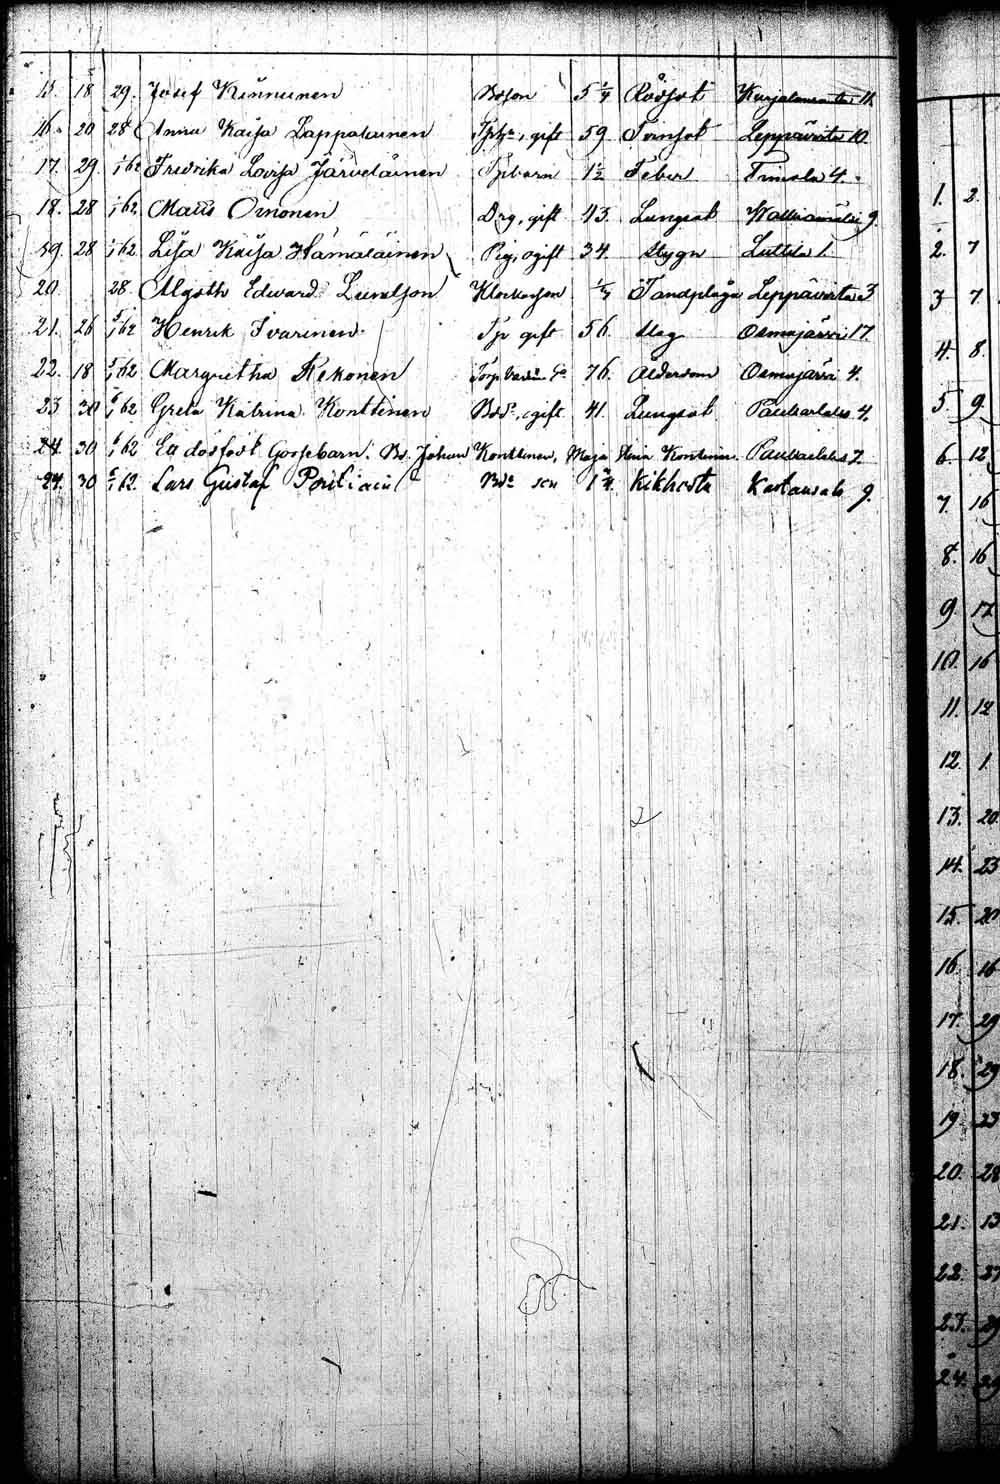 15. 18 29. Josef Kinnunen Bdson 5 1/4 Rödsot Kurjalanranta 11.
16. 20 28 Anna Kaisa Lappalainen gift 59 Tvinsot Leppävirta 10.
17. 29. 1/62 Fredrika Lovisa Järveläinen Tpbarn 1 1/2 Feber Timola 4.
18. 28 1/62 Matts Oinonen Drg, gift 43. Lungsot 9.
19. 28 1/62 Lisa Kaisa Hämäläinen Pig, ogift 34. Stygn Luttila 1.
20. 28. Algoth Edvard Lundson Klockarson Tandplåga Leppävirta 3
21. 26 5/1 62 Henrik Ivarinen Tp gift 56. Slag Osmajärvi 17.
22. 18 5/1 62 Margretha Rekonen 76. Ålderdom Osmajärvi 4.
23 30 6/1 62 Greta Katrina Konttinen gift 41. Lungsot Paukarlaks. 4.
24. 30 6/1 62 Ett dödfödt Gossebarn. Bd. Johan Konttinen, Maja Stina Konttinen. Paukarlaks 7.
24. 30 6/1 62. Lars Gustaf Bde son 1 3/4 Kikhosta 9.
1. 2.
2. 7
3 7.
4. 8.
5. 9.
6. 12
7. 16
8. 16
9. 17
10. 16
11. 12
12. 1.
13. 20.
14. 23
15. 20
16. 16
17. 29
18. 29
19. 23
20. 28
21. 13
22. 27
23. 29
24.